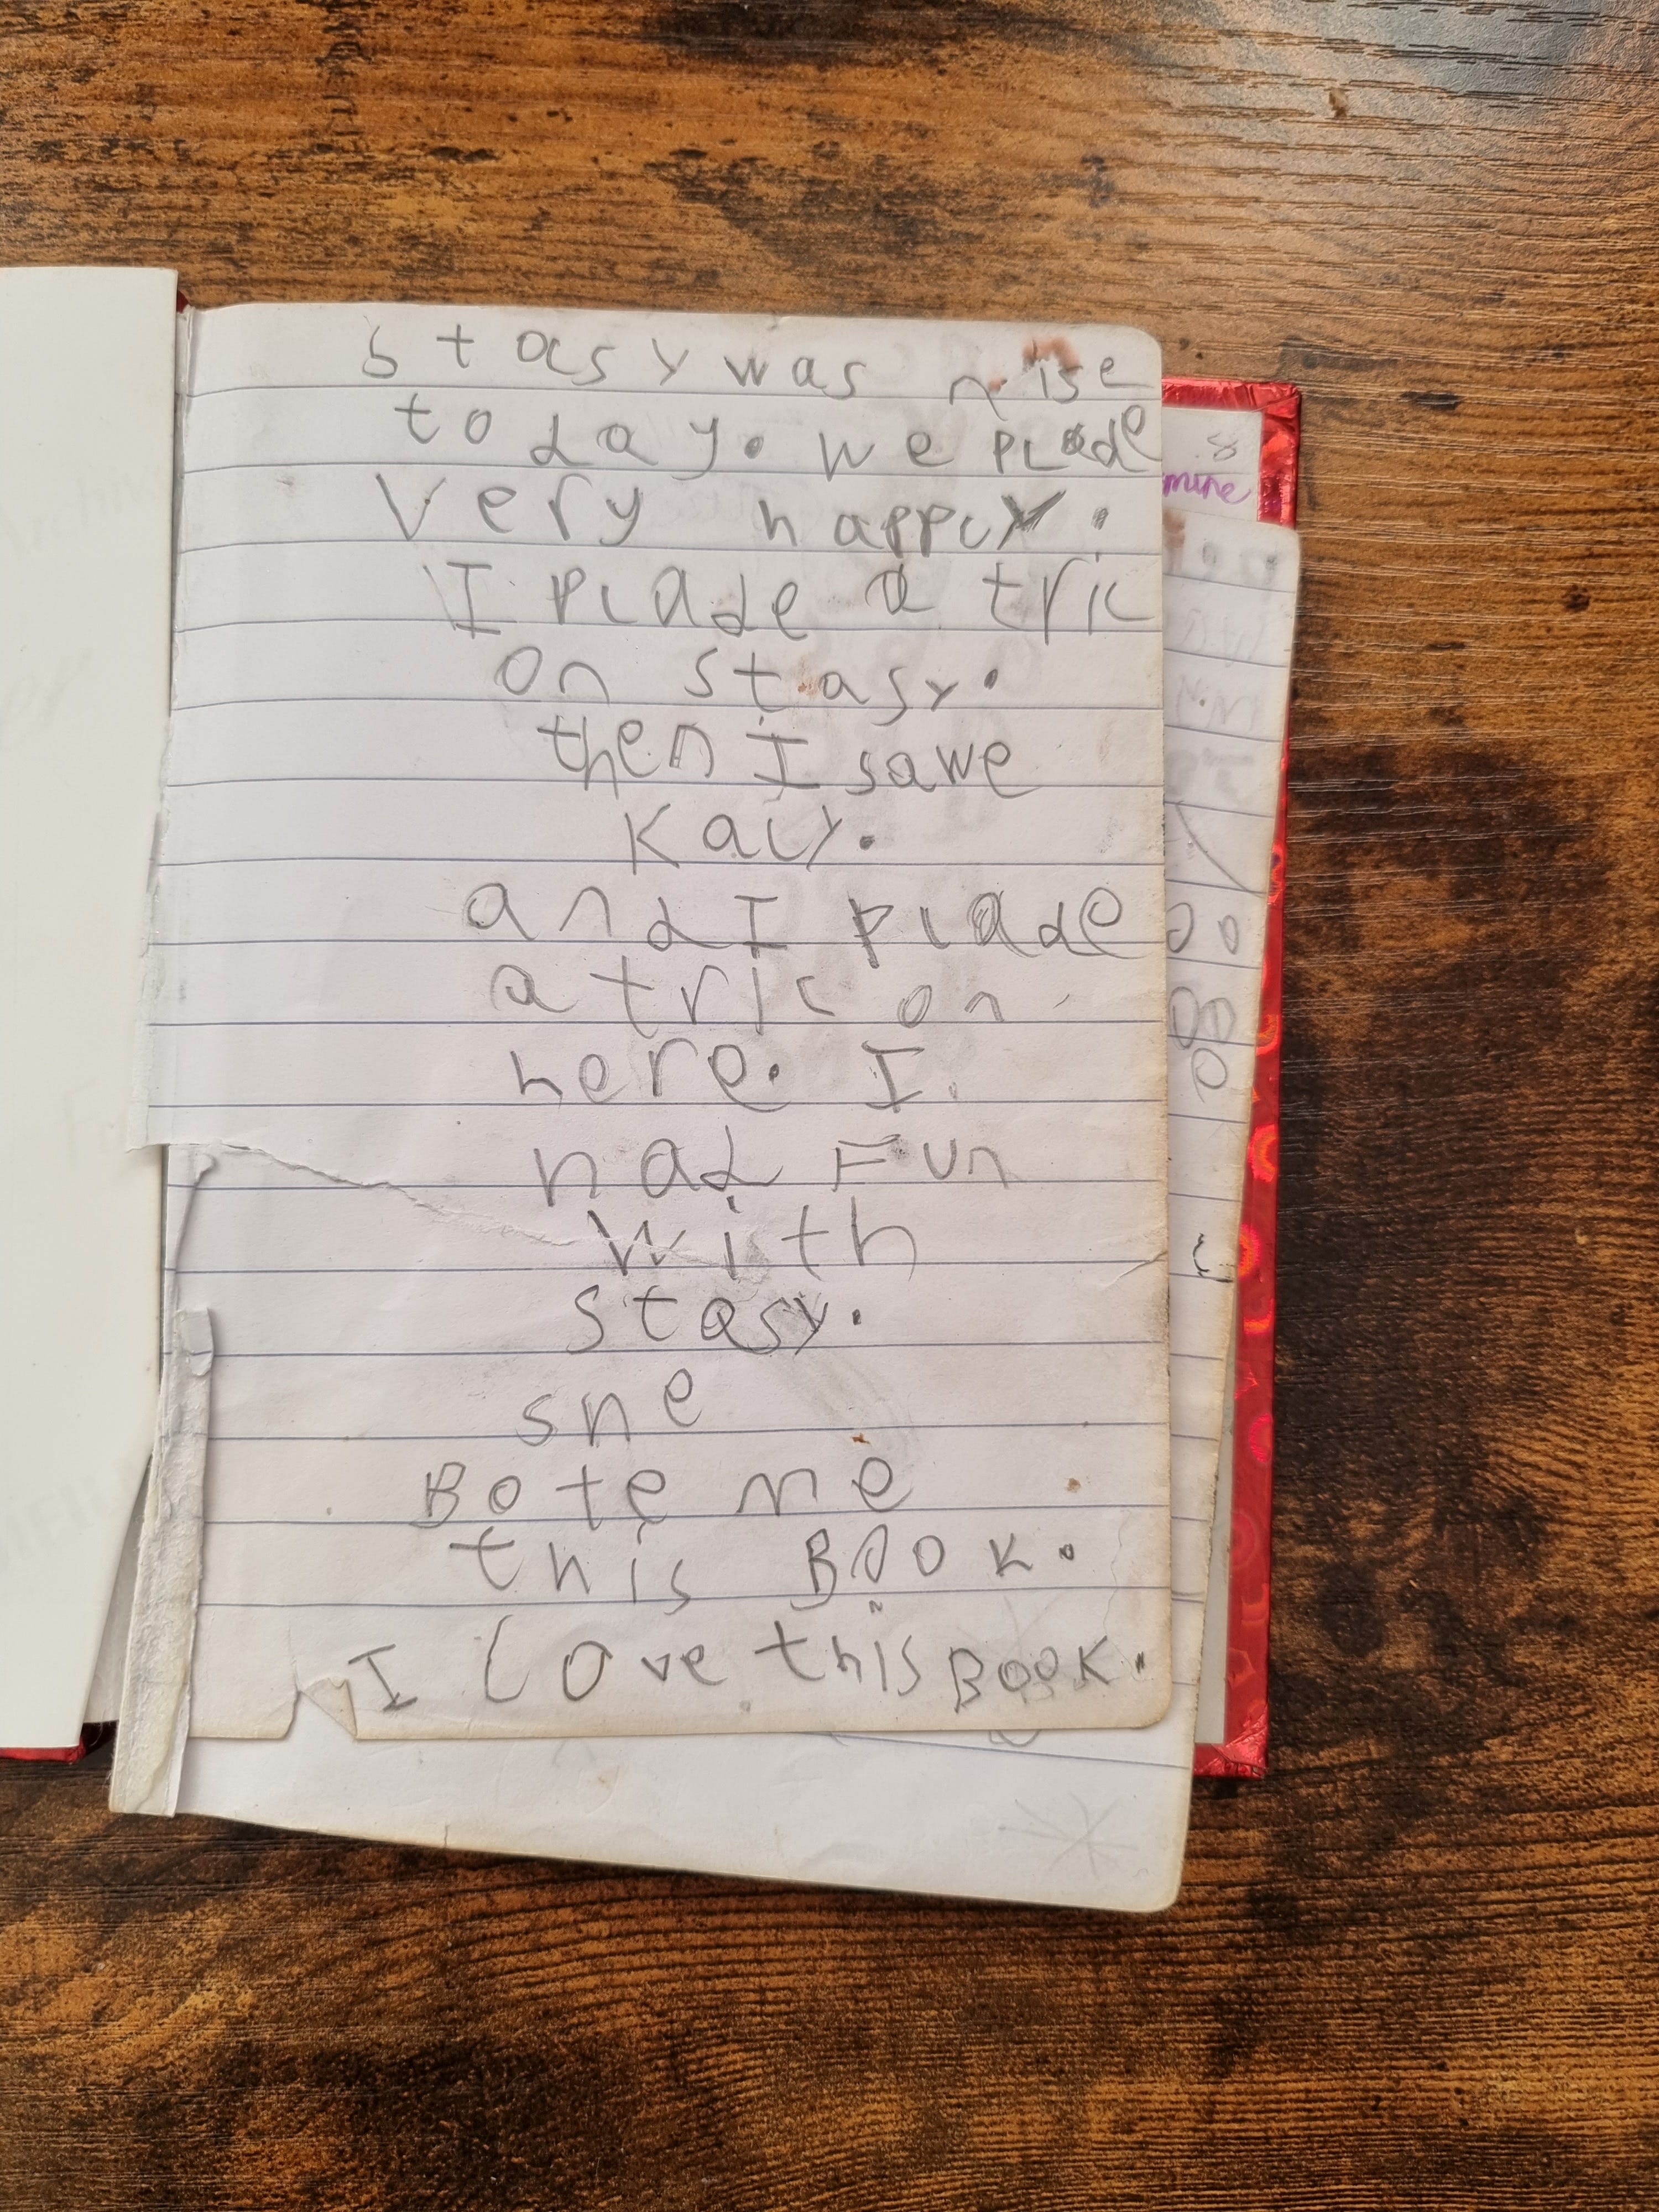 stasy was nise
today. we plade
very happly.
I plade a tric
on stasy.
then I sawe
Kaly.
and I plade
a tric on
here. I
had Fun
with
stasy.
she
Bote me
this Book.
I Love this Book.
mine